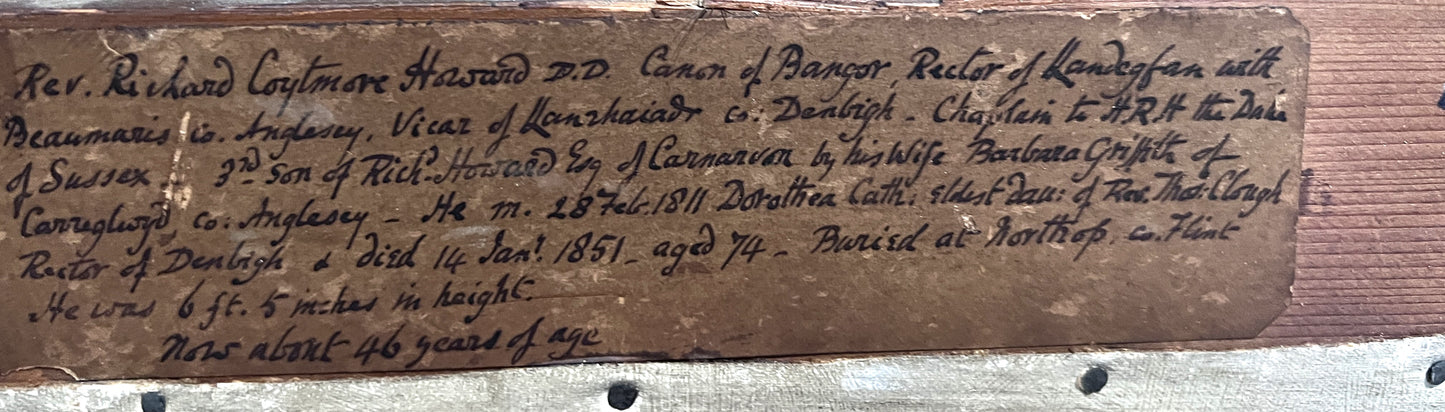 Rev. Richard Coytmore Howard D.D. Canon of Bangor, Rector of Llandegfan with
Beaumaris co. Anglesey, Vicar of Llanrhaiadr co: Denbigh - Chaplain to H.R.H the Duke
of Sussex 3rd son of Richd. Howard Esq of Carnarvon by his Wife Barbara Griffith of
Carreglwyd, co: Anglesey - He m. 28 Feb. 1811 Dorothea Cath: eldest dau: of Rev. Thos: Clough
Rector of Denbigh & died 14 Jany. 1851 - aged 74 - Buried at Northop, co. Flint
He was 6 ft. 5 inches in height.
Now about 46 years of age